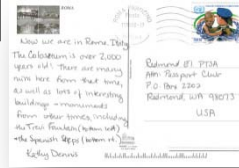 Now we are in Rome, Italy
The Colosseum is over 2,000
years old! There are many
ruins here from that time,
as well as lots of interesting
buildings + monuments
from other times, including
the Trevi Fountain (bottom left)
+ the Spanish Steps (bottom rt.)
Kathy Dennis
Redmond El PTSA
Attn: Passport Club
P.O. Box 2202
Redmond, WA 98073
USA